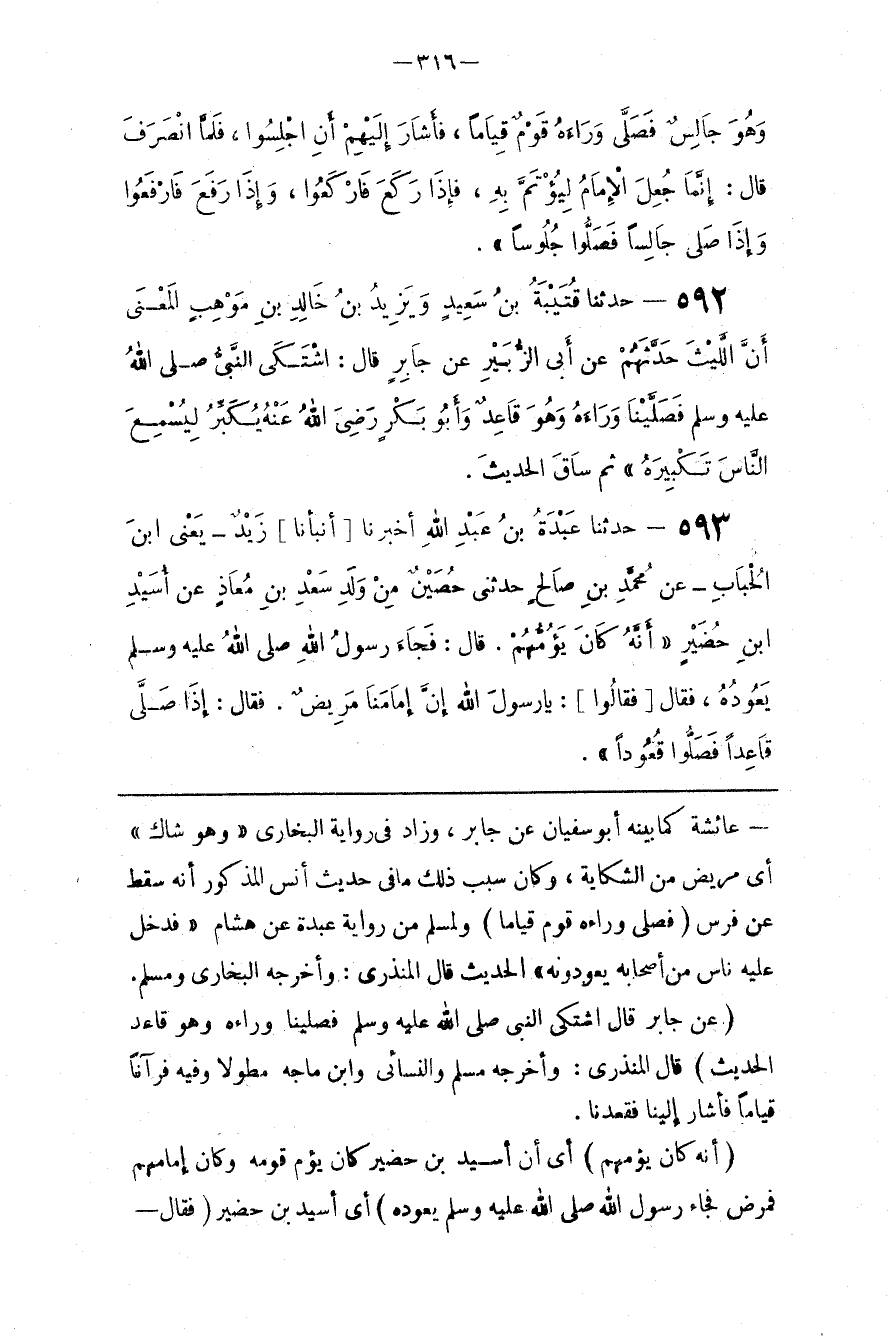 —٣١٦—
وَهُوَ جَالِسٌ فَصَلَّى وَرَاءَهُ قَوْمٌ قِيَاماً ، فأَشَارَ إِلَيْهِمْ أَنِ اجْلِسُوا ، فَلَمَّا انْصَرَفَ
قال : إِنَّمَا جُعِلَ الْإِمَامُ لِيُؤْتَمَّ بِهِ ، فإِذَا رَكَعَ فَارْكَعُوا ، وَإِذَا رَفَعَ فَارْفَعُوا
وَإِذَا صَلى جَالِساً فَصَلُّوا جُلُوساً » .
٥٩٢ — حدثنا قُتَيْبَةُ بنُ سَعِيدٍ وَيَزِيدُ بنُ خَالِدِ بنِ مَوْهِبٍ المَعْنَى
أَنَّ اللَّيْثَ حَدَّثَهُمْ عن أَبى الزُّبَيْرِ عن جَابِرٍ قال : اشْتَكَى النَّبىُّ صلى اللهُ
عليه وسلم فَصَلَّيْنَا وَرَاءَهُ وَهُوَ قَاعِدٌ وَأَبُو بَكْرٍ رَضِىَ اللهُ عَنْهُ يُكَبِّرُ لِيُسْمِعَ
النَّاسَ تَكْبِيرَهُ » ثم ساقَ الحديثَ .
٥٩٣ — حدثنا عَبْدَةُ بنُ عَبْدِ اللهِ أخبرنا [ أنبأنا ] زَيْدٌ ــ يَعْنى ابنَ
الْحُبَابِ ــ عن مُحمَّدِ بنِ صَالحٍ حدثنى حُصَيْنٌ مِنْ وَلَدِ سَعْدِ بنِ مُعَاذٍ عن أُسَيْدِ
ابنِ حُضَيْرٍ « أَنَّهُ كَانَ يَؤُمُّهُمْ . قال : فَجَاءَ رسولُ اللهِ صلى اللهُ عليه وسلم
يَعُودُهُ ، فقال [ فقالُوا ] : يارسولَ الله إِنَّ إِمَامَنَا مَرِيضٌ . فقال : إِذَا صَلَّى
قاَعِداً فَصَلُّوا قُعُوداً » .
— عائشة كما بينه أبو سفيان عن جابر ، وزاد فى رواية البخارى « وهو شاك »
أى مريض من الشكاية ، وكان سبب ذلك مافى حديث أنس المذكور أنه سقط
عن فرس ( فصلى وراءه قوم قياما ) ولمسلم من رواية عبدة عن هشام « فدخل
عليه ناس من أصحابه يعودونه» الحديث قال المنذرى : وأخرجه البخارى ومسلم.
( عن جابر قال اشتكى النبى صلى الله عليه وسلم فصلينا وراءه وهو قاعد
الحديث ) قال المنذرى : وأخرجه مسلم والنسائى وابن ماجه مطولا وفيه فرآنا
قياماً فأشار إلينا فقعدنا .
( أنه كان يؤمهم ) أى أن أسيد بن حضير كان يؤم قومه وكان إمامهم
فمرض فجاء رسول الله صلى الله عليه وسلم يعوده ) أى أسيد بن حضير ( فقال—